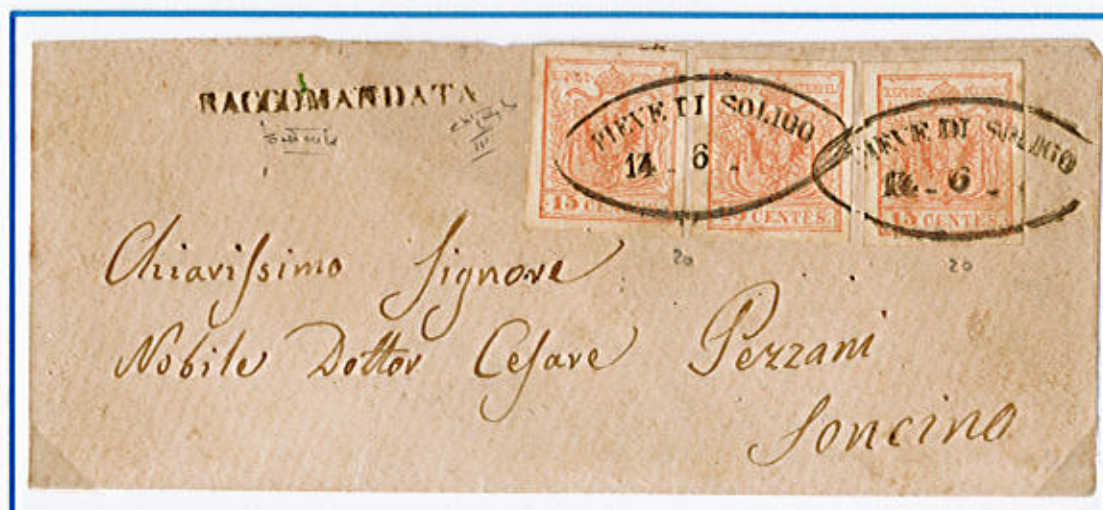 RACCOMANDATA
PIEVE DI SOLIGO
14 6
PIEVE DI SOLIGO
14 6
15 CENTES.
15 CENTES.
15 CENTES.
20
20
Chiariſsimo Signore
Nobile Dottor Ceſare Pezzani
Soncino